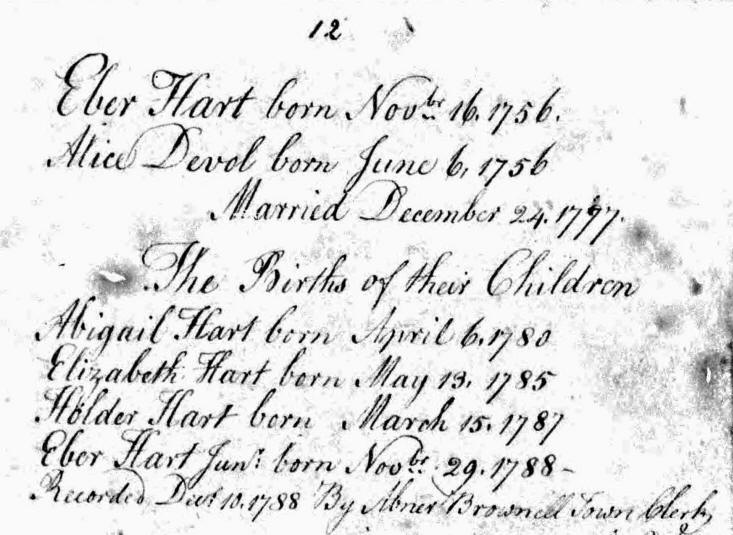 12
Eber Hart born Novbr 16. 1756.
Alice Devol born June 6, 1756
Married December 24. 1777.
The Births of their Children
Abigail Hart born April 6. 1780
Elizabeth Hart born May 13. 1785
Holder Hart born March 15. 1787
Eber Hart Junr. born Novbr. 29. 1788-
Recorded Decr 10. 1788 By Abner Brownell Town Clerk